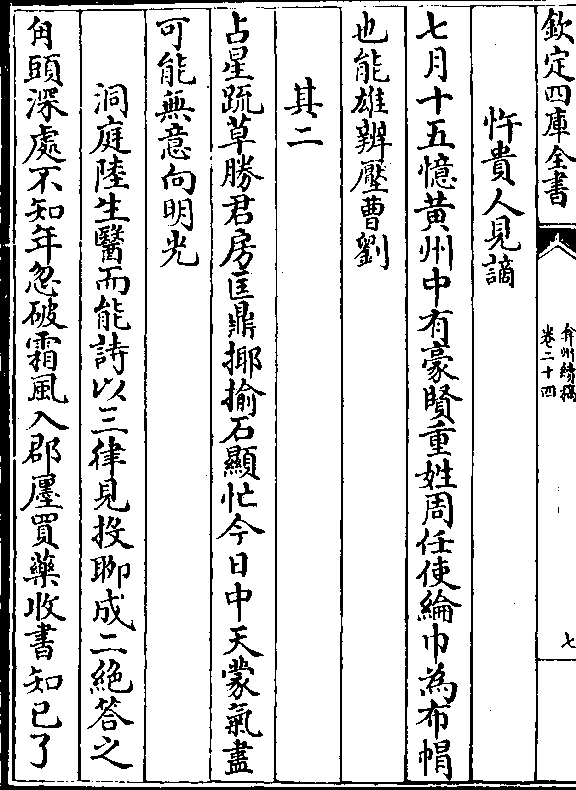 欽定四庫全書
弇州續稿
卷二十四
七
忤貴人見謫
七月十五憶黄州中有豪賢重姓周任使綸巾為布㡌
也能雄辨壓曹劉
其二
占星䟽草勝君房匡鼎揶揄石顯忙今日中天蒙氣盡
可能無意向明光
洞庭陸生醫而能詩以三律見投聊成二絶答之
角頭深處不知年忽破霜風入郡廛買藥收書知已了